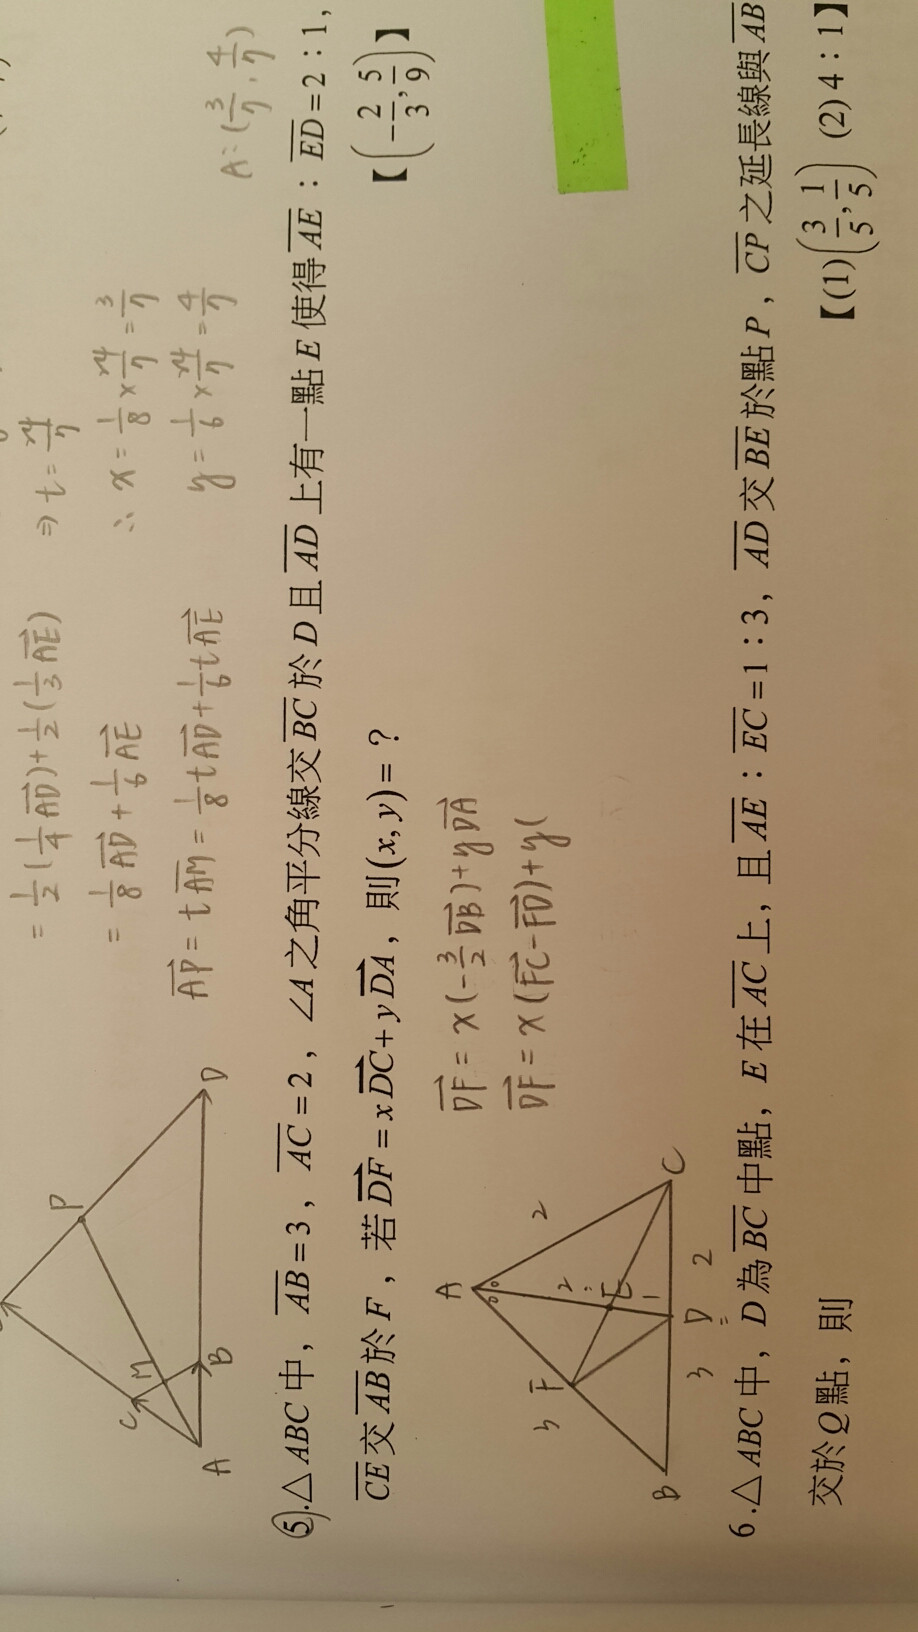 = 1/2(1/4 AD) + 1/2(1/3 AE) ⇒ t = 24/7
= 1/8 AD + 1/6 AE ∴ x = 1/8 × 24/7 = 3/7
AP = tAM = 1/8 tAD + 1/6 tAE y = 1/6 × 24/7 = 4/7
A:(3/7, 4/7)
C
M
P
A
B
D
5.△ABC中,AB=3,AC=2,∠A之角平分線交BC於D且AD上有一點E使得AE:ED=2:1,
CE交AB於F,若DF=xDC+yDA,則(x, y)=?
【(-2/3, 5/9)】
DF = x(-3/2 DB) + yDA
DF = x(FC-FD)+y(
A
3
2
F
2
E
1
B
3
D
2
C
6.△ABC中,D為BC中點,E在AC上,且AE:EC=1:3,AD交BE於點P,CP之延長線與AB
交於Q點,則
【(1)(3/5, 1/5) (2) 4:1】